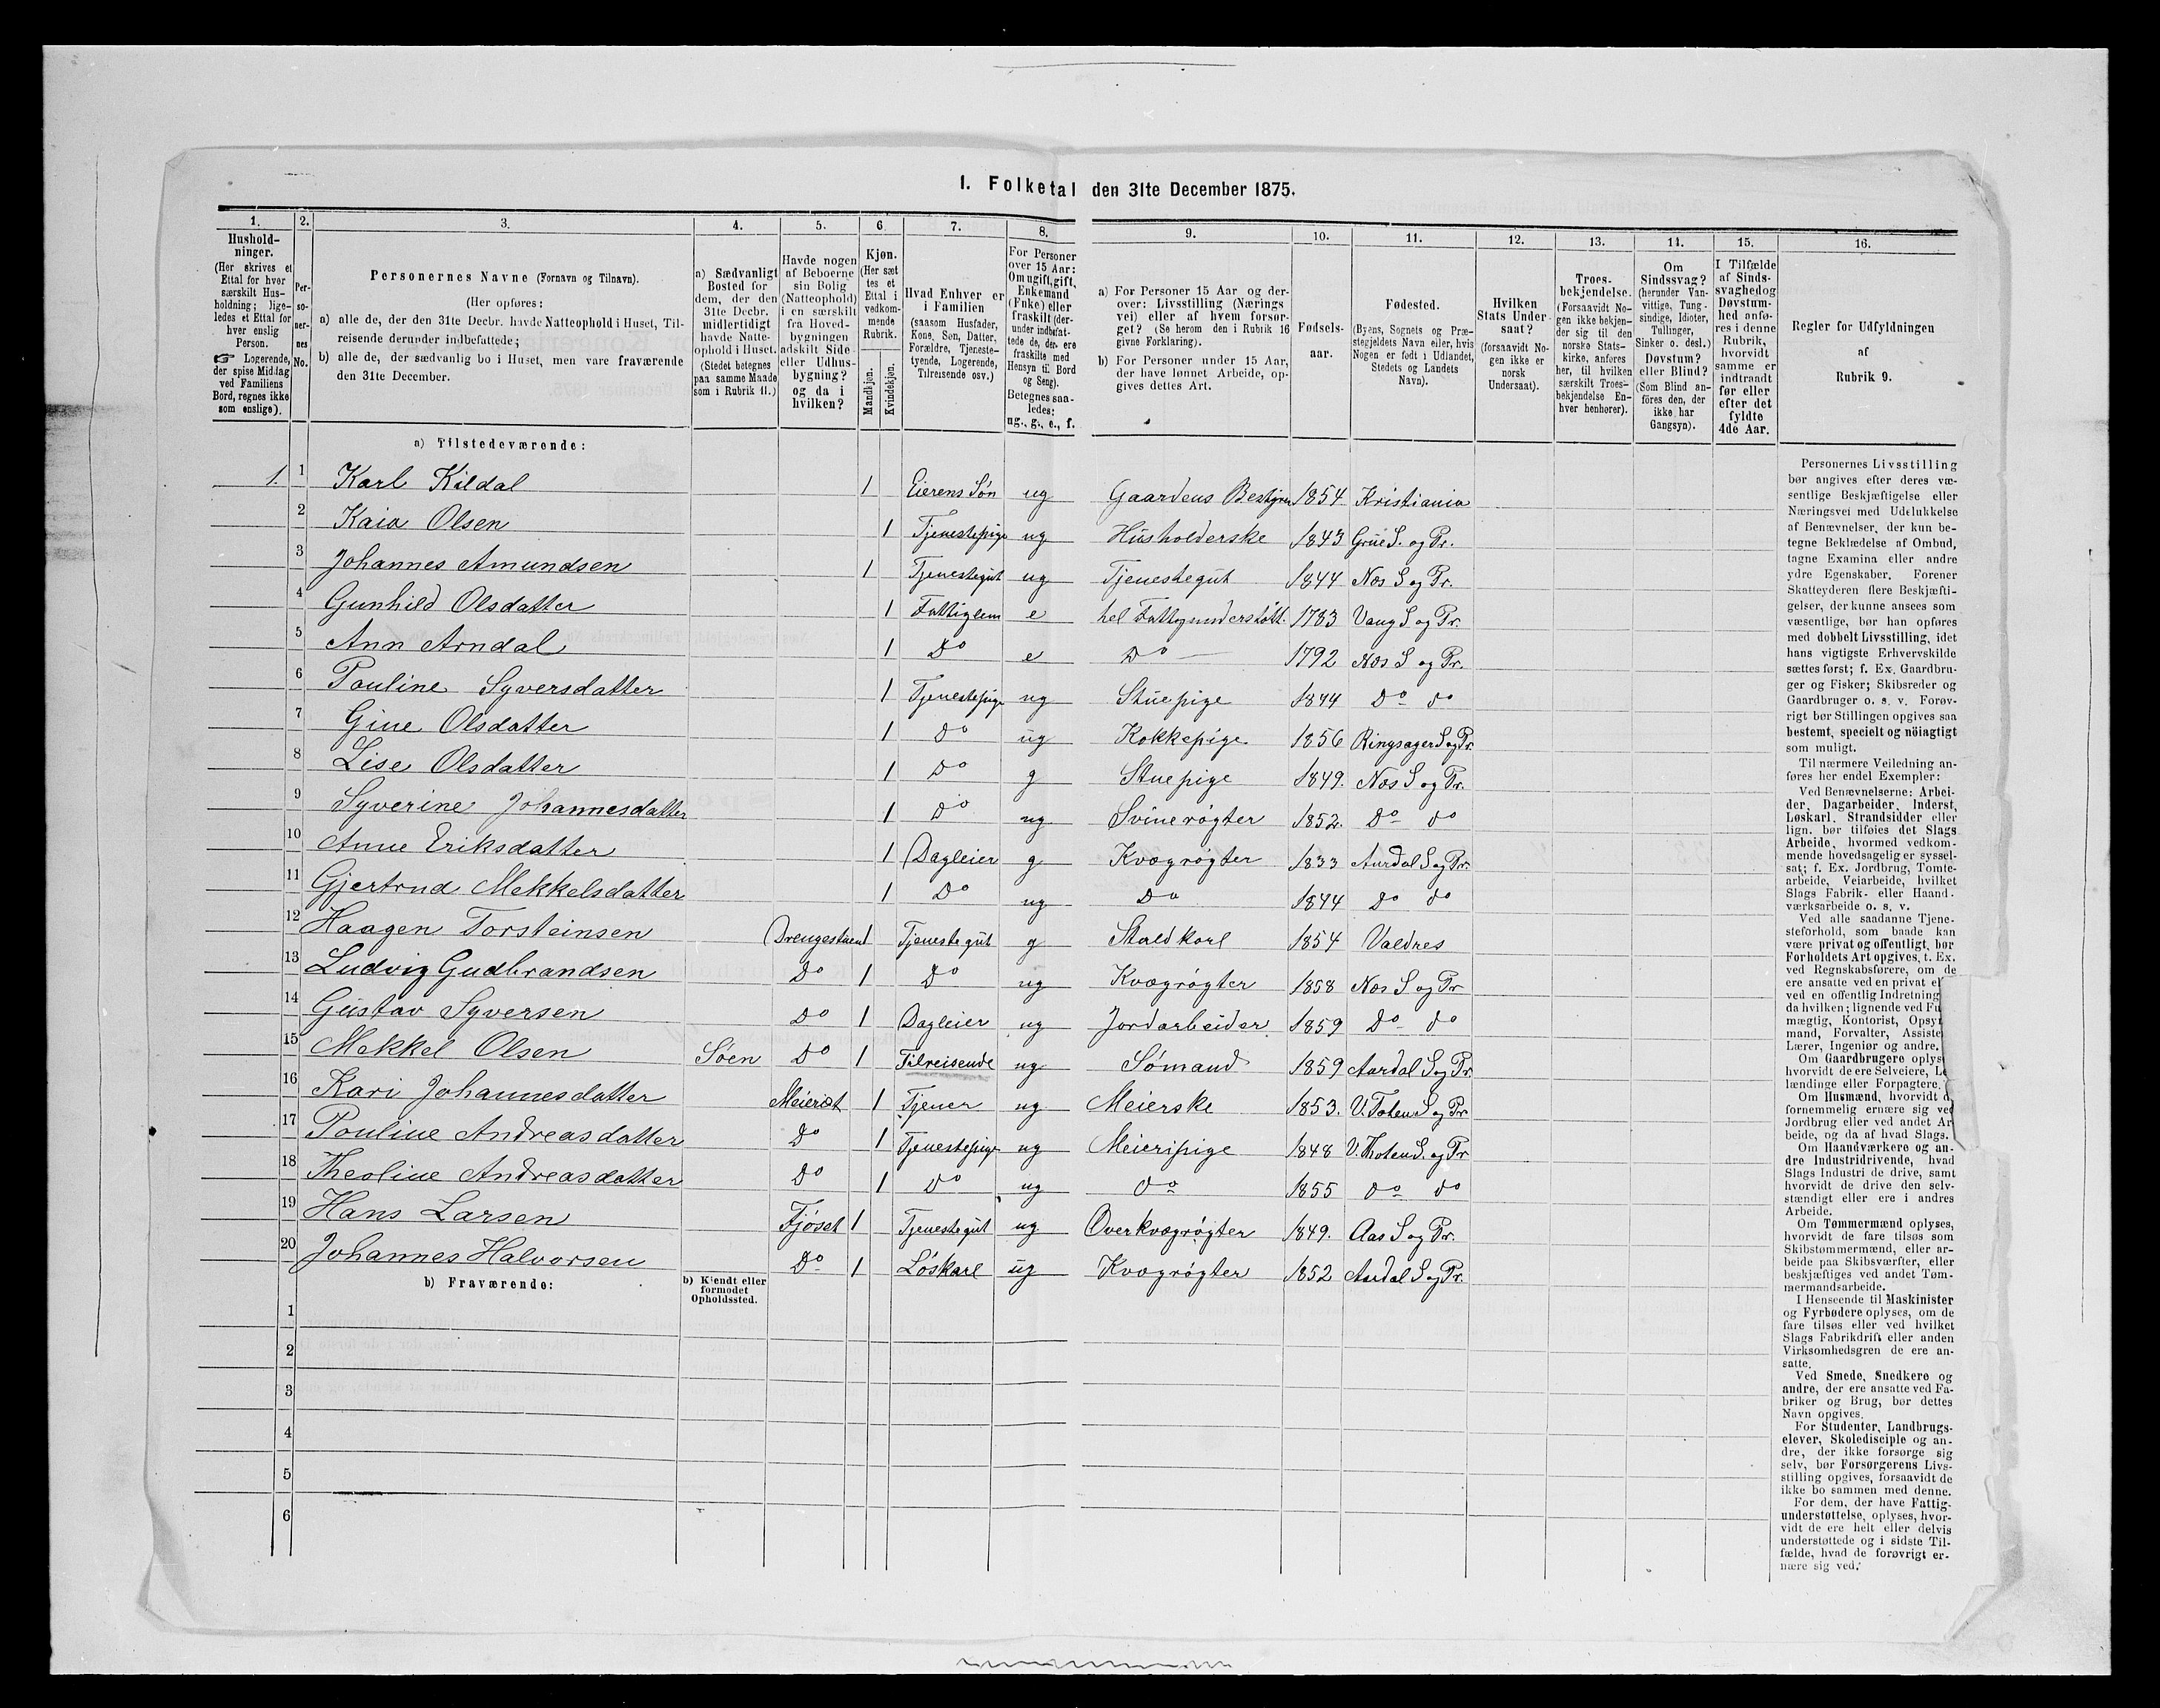 1. Folketal den 31te December 1875.
1. 2. 3. 4. 5. 6 7. 8. 9. 10. 11. 12. 13. 14. 15. 16.
Hushold-
ninger.
(Her skrives et
Ettal for hver
særskilt Hus-
holdning; lige-
ledes et Ettal for
hver enslig
Person.
☞ Logerende,
der spise Middag
ved Familiens
Bord, regnes ikke
som enslige).
Per-
so-
ner-
nes
No.
Personernes Navne (Fornavn og Tilnavn).
(Her opføres:
a) alle de, der den 31te Decbr. havde Natteophold i Huset, Til-
reisende derunder indbefattede;
b) alle de, der sædvanlig bo i Huset, men vare fraværende
den 31te December.
a) Sædvanligt
Bosted for
dem, der den
31te Decbr.
midlertidigt
havde Natte-
ophold i Huset.
(Stedet betegnes
paa samme Maade
som i Rubrik 11.)
Havde nogen
af Beboerne
sin Bolig
(Natteophold)
i en særskilt
fra Hoved-
bygningen
adskilt Side-
eller Udhus-
bygning?
og da i
hvilken?
Kjøn.
(Her sæt
tes et
Ettal i
vedkom-
mende
Rubrik.
Mandkjøn.
Kvindekjøn.
Hvad Enhver er
i Familien
(saasom Husfader,
Kone, Søn, Datter,
Forældre, Tjeneste-
tyende, Logerende,
Tilreisende osv.)
For Personer
over 15 Aar:
Om ugift, gift,
Enkemand
(Enke) eller
fraskilt (der-
under indbefat-
tede de, der ere
fraskilte med
Hensyn til Bord
og Seng).
Betegnes saa-
ledes:
ug., g., e., f.
a) For Personer 15 Aar og der-
over: Livsstilling (Nærings
vei) eller af hvem forsør-
get? (Se herom den i Rubrik 16
givne Forklaring).
b) For Personer under 15 Aar,
der have lønnet Arbeide, op-
gives dettes Art.
Fødsels-
aar.
Fødested.
(Byens, Sognets og Præ-
stegjeldets Navn eller, hvis
Nogen er født i Udlandet,
Stedets og Landets
Navn).
Hvilken
Stats Under-
saat?
(forsaavidt No-
gen ikke er
norsk
Undersaat).
Troes-
bekjendelse.
(Forsaavidt No-
gen ikke bekjen-
der sig til den
norske Stats-
kirke, anføres
her, til hvilken
særskilt Troes-
bekjendelse En-
hver henhører).
Om
Sindssvag?
(herunder Van-
vittige, Tung-
sindige, Idioter,
Tullinger,
Sinker o. desl.)
Døvstum?
eller Blind?
(Som Blind an-
føres den, der
ikke har
Gangsyn).
I Tilfælde
af Sinds-
svaghed og
Døvstum-
hed anfø-
res i denne
Rubrik,
hvorvidt
samme er
indtraadt
før eller
efter det
fyldte
4de Aar.
Regler for Udfyldningen
af
Rubrik 9.
a) Tilstedeværende:
1. 1 Karl Kildal 1 Eierens Søn ug Gaardens Bestyrer 1854 Kristiania
2 Kaia Olsen 1 Tjenestepige ug Husholderske 1843 Grue S. og Pr.
3 Johannes Amundsen 1 Tjenestegut ug Tjenestegut 1844 Næs S og Pr.
4 Gunhild Olsdatter 1 Fattiglem e hel Fattigunderstøtt. 1783 Vang S. og Pr.
5 Ann Arndal 1 Do e Do 1792 Næs S og Pr.
6 Pauline Syversdatter 1 Tjenestepige ug Stuepige 1844 Do do
7 Gine Olsdatter 1 Do ug Kokkepige 1856 Ringsager S og Pr
8 Lise Olsdatter 1 Do g Stuepige 1849. Næs S og Pr.
9 Syverine Johannesdatter 1 Do ug Svinerøgter 1852. Do do
10 Anne Eriksdatter 1 Dagleier g Kvægrøgter 1833 Aurdal S og Pr.
11 Gjertrud Mekkelsdatter 1 Do ug Do 1844 Do do
12 Haagen Torsteinsen Drengestuen 1 Tjenestegut g Staldkarl 1854 Valdres
13 Ludvig Gudbrandsen Do 1 Do ug Kvægrøgter 1858 Næs S og Pr
14 Gustav Syversen Do 1 Dagleier ug Jordarbeider 1859 Do do
15 Mekkel Olsen Søen Do 1 Tilreisende ug Sømand 1859 Aurdal S og Pr
16 Kari Johannesdatter Meieriet 1 Tjener ug Meierske 1853. V. Toten S og Pr
17 Pauline Andreasdatter Do 1 Tjenestepige ug Meieripige 1848 V. Thoten S. og Pr
18 Theoline Andreasdatter Do 1 Do ug Do 1855 do do
19 Hans Larsen Fjøset 1 Tjenestegut ug Overkvægrøgter 1849. Aas S og Pr.
20 Johannes Halvorsen Do 1 Løskarl ug Kvægrøgter 1852 Aurdal S og Pr.
b) Fraværende:
b) Kjendt eller
formodet
Opholdssted.
1
2
3
4
5
6
Personernes Livsstilling
bør angives efter deres væ-
sentlige Beskjæftigelse eller
Næringsvei med Udelukkelse
af Benævnelser, der kun be-
tegne Beklædelse af Ombud,
tagne Examina eller andre
ydre Egenskaber. Forener
Skatteyderen flere Beskjæfti-
gelser, der kunne ansees som
væsentlige, bør han opføres
med dobbelt Livsstilling, idet
hans vigtigste Erhvervskilde
sættes først; f. Ex. Gaardbru-
ger og Fisker; Skibsreder og
Gaardbruger o. s. v. Forøv-
rigt bør Stillingen opgives saa
bestemt, specielt og nöiagtigt
som muligt.
Til nærmere Veiledning an-
føres her endel Exempler:
Ved Benævnelserne: Arbei-
der, Dagarbeider, Inderst,
Løskarl, Strandsidder eller
lign. bør tilføies det Slags
Arbeide, hvormed vedkom-
mende hovedsagelig er syssel-
sat; f. Ex. Jordbrug, Tomte-
arbeide, Veiarbeide, hvilket
Slags Fabrik- eller Haand-
værksarbeide o. s. v.
Ved alle saadanne Tjene-
steforhold, som baade kan
være privat og offentligt, bør
Forholdets Art opgives, t. Ex.
ved Regnskabsførere, om de
ere ansatte ved en privat el
ved en offentlig Indretning
da hvilken; lignende ved Fu
mægtig, Kontorist, Opsy
mand, Forvalter, Assiste
Lærer, Ingeniør og andre.
Om Gaardbrugere oplys
hvorvidt de ere Selveiere, Le
lændinge eller Forpagtere.
Om Husmænd, hvorvidt d
fornemmelig ernære sig ved
Jordbrug eller ved andet Ar
beide, og da af hvad Slags.
Om Haandværkere og an-
dre Industridrivende, hvad
Slags Industri de drive, samt
hvorvidt de drive den selv-
stændigt eller ere i andres
Arbeide.
Om Tømmermænd oplyses,
hvorvidt de fare tilsøs som
Skibstømmermænd, eller ar-
beide paa Skibsværfter, eller
beskjæftiges ved andet Tøm-
mermandsarbeide.
I Henseende til Maskinister
og Fyrbødere oplyses, om de
fare tilsøs eller ved hvilket
Slags Fabrikdrift eller anden
Virksomhedsgren de ere an-
satte.
Ved Smede, Snedkere og
andre, der ere ansatte ved Fa-
briker og Brug, bør dettes
Navn opgives.
For Studenter, Landbrugs-
elever, Skoledisciple og an-
dre, der ikke forsørge sig
selv, bør Forsørgerens Livs-
stilling opgives, forsaavidt de
ikke bo sammen med denne.
For dem, der have Fattig-
understøttelse, oplyses, hvor-
vidt de ere helt eller delvis
understøttede og i sidste Til-
fælde, hvad de forøvrigt er-
nære sig ved.